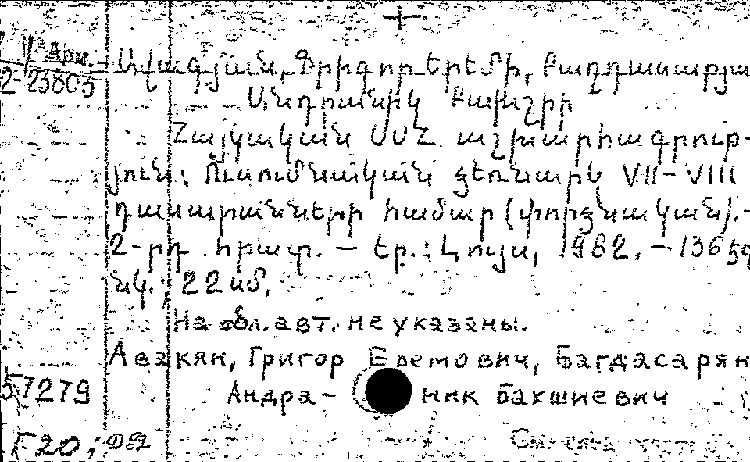 V Арм.
2-23805
Ավագյան, Գրիգոր Երեմի, Բաղդասարյա
Անդրանիկ Բախշիի
Հայկական ՍՍՀ աշխարհագրութ-
յուն: Ուսումնական ձեռնարկ VII-VIII
դասարանների համար (փորձնական).-
2-րդ հրատ. - Եր.: Լույս, 1982. - 136 էջ
նկ.; 22 սմ.
На обл. авт. не указаны.
Авакян, Григор Еремович, Багдасарян
57279 Андра- ник Бахшиевич
Г20;